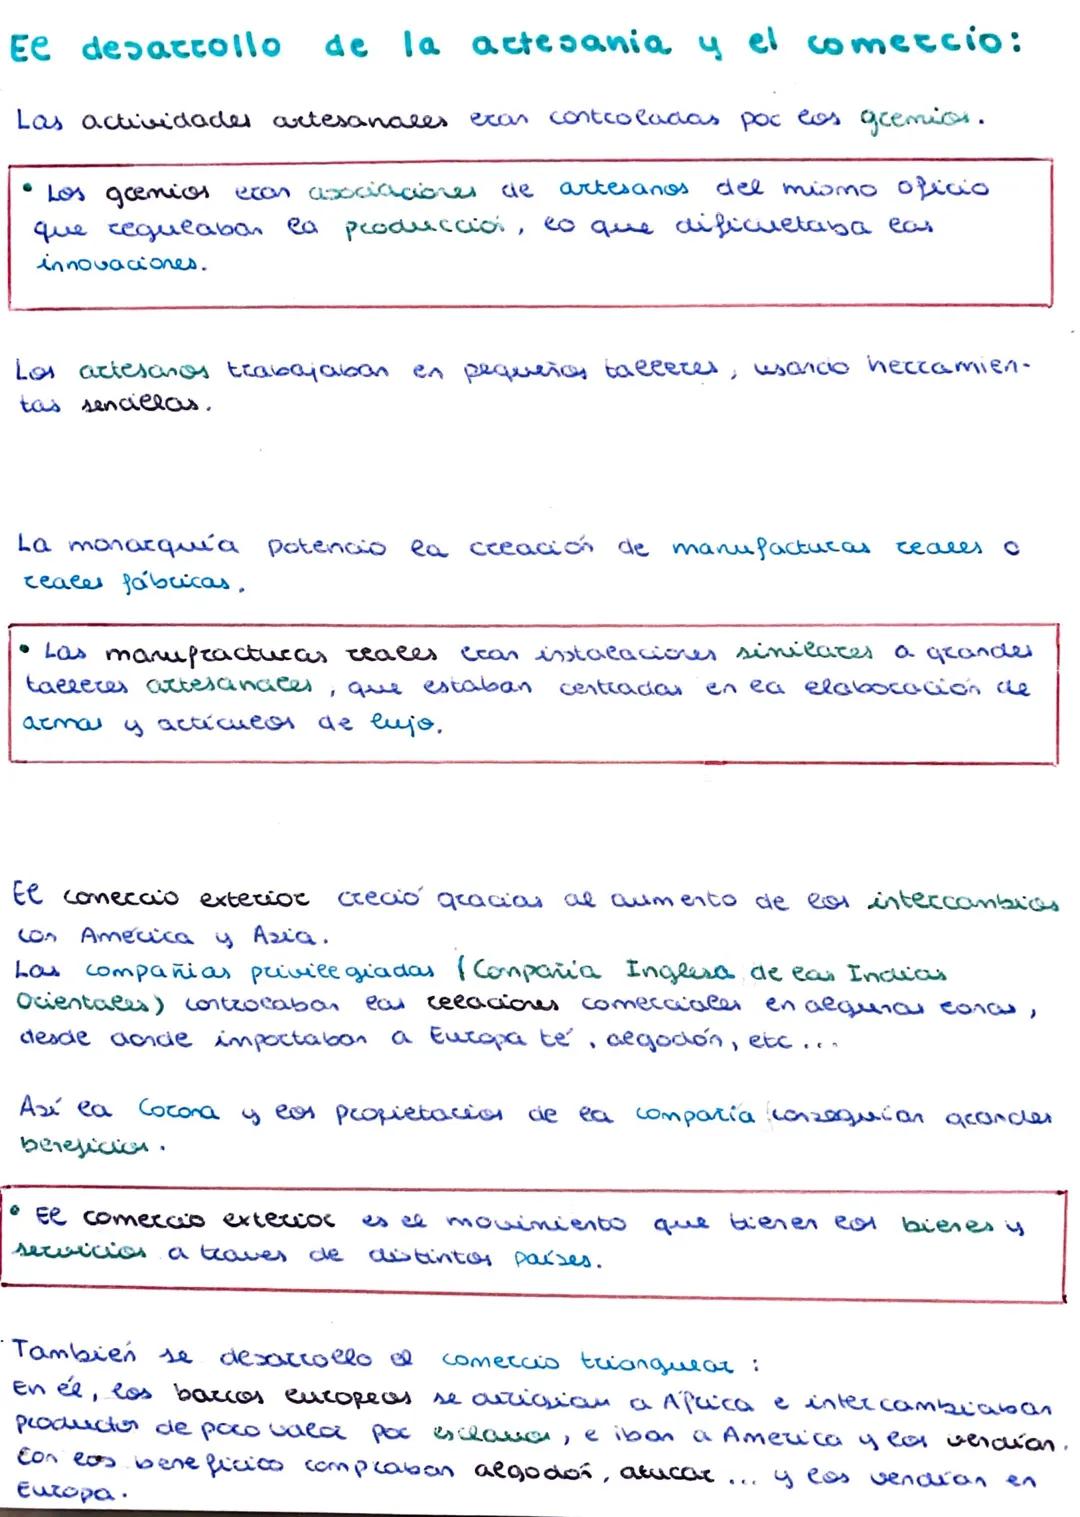 El desarrollo de la artesania y el comercio:
Las actividades artesanales eran controladas por los gremios.
• Los gremios eran asociaciones de artesanos del mismo oficio
que regulaban la producció́n, lo que dificultaba las
innovaciones.
Los artesanos trabajaban en pequeños talleres, usando herramien-
tas sencillas.
La monarquía potencio la creación de manufacturas reales o
reales fábricas.
• Las manufracturas reales eran instalaciones similares a grandes
talleres artesanales, que estaban centradas en la elaboración de
armas y artículos de lujo.
El comercio exterior creció gracias al aumento de los intercambios
con América y Asia.
Las compañias privilegiadas (Compañia Inglesa de las Indias
Orientales) controlaban las relaciones comerciales en algunas zonas,
desde donde importaban a Europa té, algodón, etc...
Así la Corona y los propietarios de la compañía conseguían grandes
beneficios.
• El comercio exterior es el movimiento que tienen los bienes y
servicios a traves de distintos países.
También se desarrollo el comercio triangular:
En él, los barcos europeos se dirigían a África e intercambiaban
productos de poco valor por esclavos, e iban a America y los vendían.
Con los beneficios compraban algodón, azucar... y los vendían en
Europa.